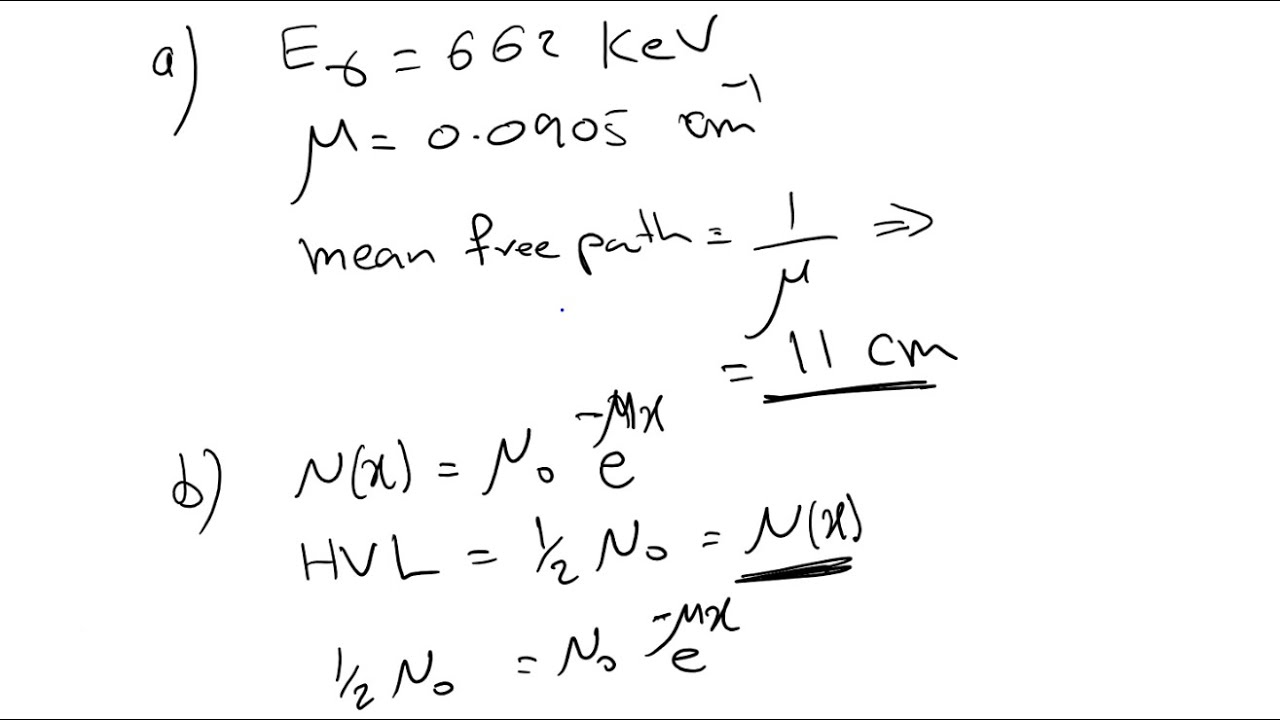 a) Eγ = 662 KeV
μ = 0.0905 cm⁻¹
mean free path = 1/μ ⇒
= 11 cm
b) N(x) = N₀ e^-μx
HVL = 1/2 N₀ = N(x)
1/2 N₀ = N₀ e^-μx